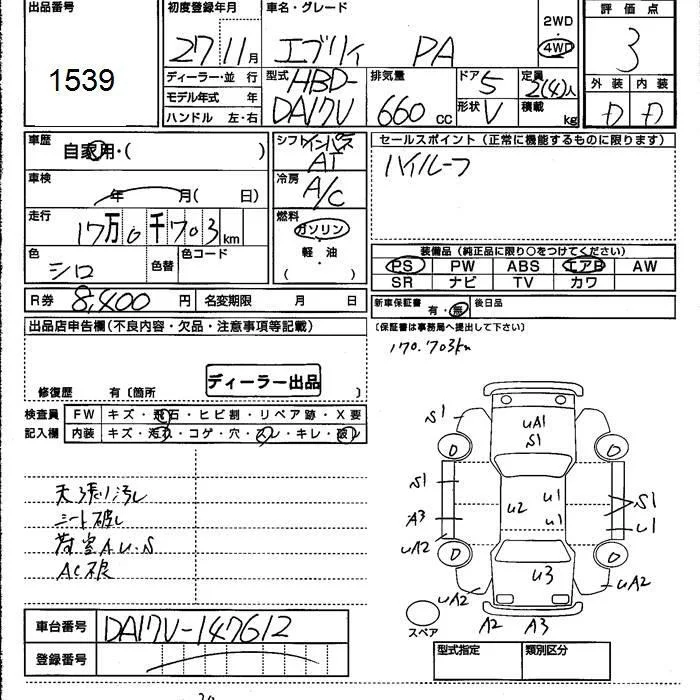 出品番号
1539
初度登録年月
27 11月
車名・グレード
エブリィ PA
2WD
4WD
評価点
3
外装 内装
D D
ディーラー・並 行
モデル年式 年
ハンドル 左・右
型式 HBD-
DA17V
排気量
660 cc
ドア 5
形状 V
定員 2(4)人
積載 kg
車歴
自家用・( )
車検
年 月( 日)
走行
17万0千703km
色
シロ
色替
色コード
R券 8,400 円
名変期限 月 日
シフト インパネ
AT
冷房
A/C
燃料
ガソリン
軽・油
( )
セールスポイント(正常に機能するものに限ります)
ハイルーフ
装備品(純正品に限り○をつけてください)
PS PW ABS エアB AW
SR ナビ TV カワ
新車保証書 有・無
後日品
(保証書は事務局へ提出して下さい)
170.703km
出品店申告欄(不良内容・欠品・注意事項等記載)
ディーラー出品
修復歴 有〔箇所 〕
検査員 FW キズ・飛石・ヒビ割・リペア跡・X要
記入欄 内装 キズ・汚れ・コゲ・穴・スレ・キレ・破レ
天張り汚れ
シート破れ
荷室AU・S
AC不良
S1
UA1
S1
D D
S1
A3
UA2
U2
U1
U1
S1
U1
D D
UA2
U3
UA2
スペア
A2 A3
車台番号 DA17V-147612
登録番号
型式指定 類別区分